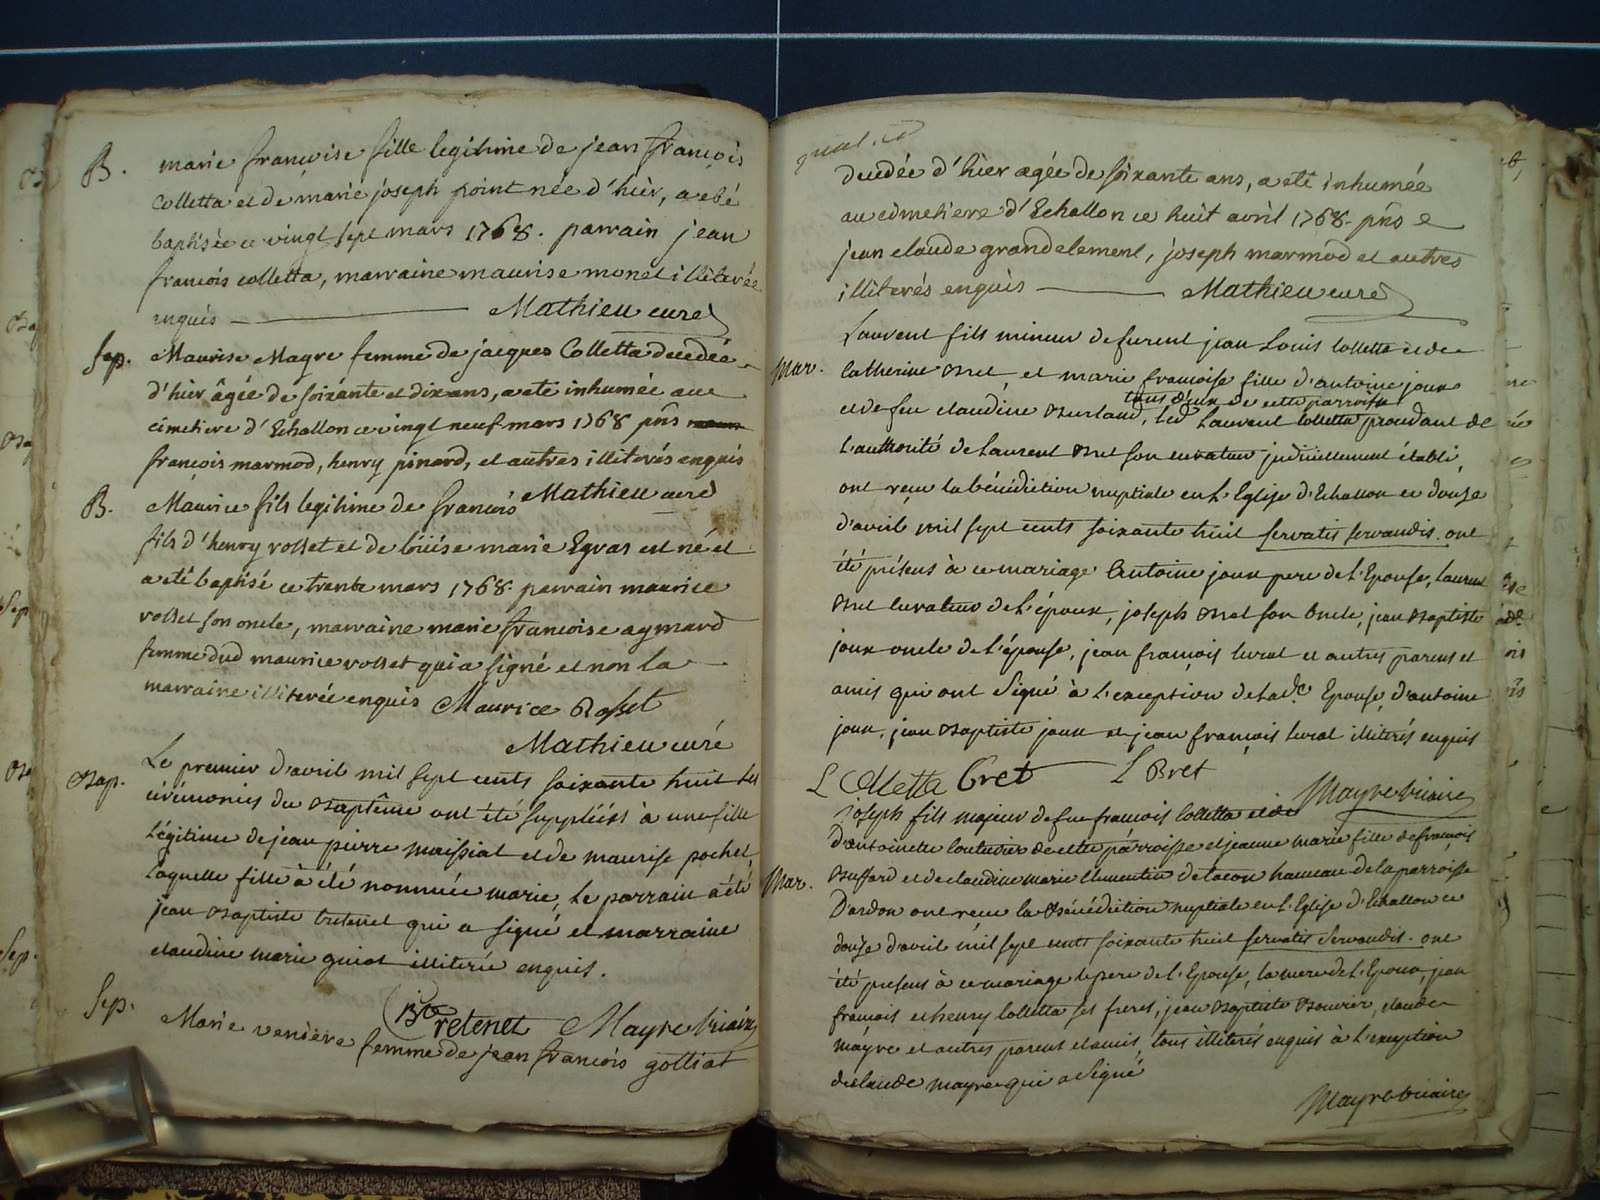 B. marie francoise fille legitime de jean françois
Colletta et de marie joseph point née d'hier, a eté
baptisée ce vingt sept mars 1768. parrain jean
françois colletta, marraine maurise monet illiterée
enquis Mathieu curé
Sep. Maurise Mayre femme de jacques Colletta decedée
d'hier âgée de soixante et dix ans, a eté inhumée au
cimetiere d'Echallon ce vingt neuf mars 1768 pñs
francois marmod, henry pinard, et autres illiterés enquis
Mathieu curé
B. Maurice fils legitime de francois
fils d'henry rosset et de loüise marie Egras est né et
a eté baptisé ce trente mars 1768. parrain maurice
rosset son oncle, marraine marie francoise aymard
femme dud maurice rosset qui a signé et non la
marraine illiterée enquis Maurice Rosset
Mathieu curé
Bap. Le premier d'avril mil sept cents soixante huit les
cérémonies du Baptême ont été suppléées à une fille
légitime de jean pierre maissiat et de maurise pochet,
laquelle fille à été nommée marie, le parrain a été
jean Baptiste tretenet qui a signé et marraine
claudine marie guiot illiterée enquis.
Bte retenet Mayre vicaire
Sep. Marie veniere femme de jean françois golliat
decedée d'hier agée de soixante ans, a eté inhumée
au cimetiere d'Echallon ce huit avril 1768. pñs
jean claude grandclement, joseph marmod et autres
illiterés enquis Mathieu curé
Mar. Laurent fils mineur de furent jean Louis Colletta et de
Catherine Bret, et marie françoise fille d'antoine joux
tous deux de cette parroisse
et de feu claudine Burland, led Laurent Colletta procedant de
l'authorité de Laurent Bret son curateur judiciellement établi,
ont reçu la bénédiction nuptiale en L'Eglise d'Echallon ce douze
d'avril mil sept cents soixante huit servatis servandis. ont
été présens à ce mariage Antoine joux pere de L'Epouse, Laurent
Bret curateur de L'époux, joseph Bret son Oncle, jean Baptiste
joux oncle de L'épouse, jean françois livrat et autres parens et
amis qui ont signé à L'exception de lade Epouse, d'antoine
joux, jean Baptiste joux et jean françois livrat illiterés enquis
L Colletta Bret L Bret
Mayre vicaire
Mar. joseph fils majeur de feu françois Colletta et de
D'antoinette Couturier de cette parroisse et jeanne marie fille de françois
Buffard et de claudine marie Clementin de lacou hameau de la parroisse
Dardon ont reçu la Bénédiction nuptiale en L'Eglise d'Echallon ce
douze d'avril mil sept cents soixante huit servatis servandis. ont
été présens à ce mariage le pere de L'Epouse, la mere de L'Epoux, jean
françois et henry Colletta ses freres, jean Baptiste Bouvier, claude
mayre et autres parens et amis, tous illiterés enquis à L'exception
de claude mayre qui a signé
Mayre vicaire